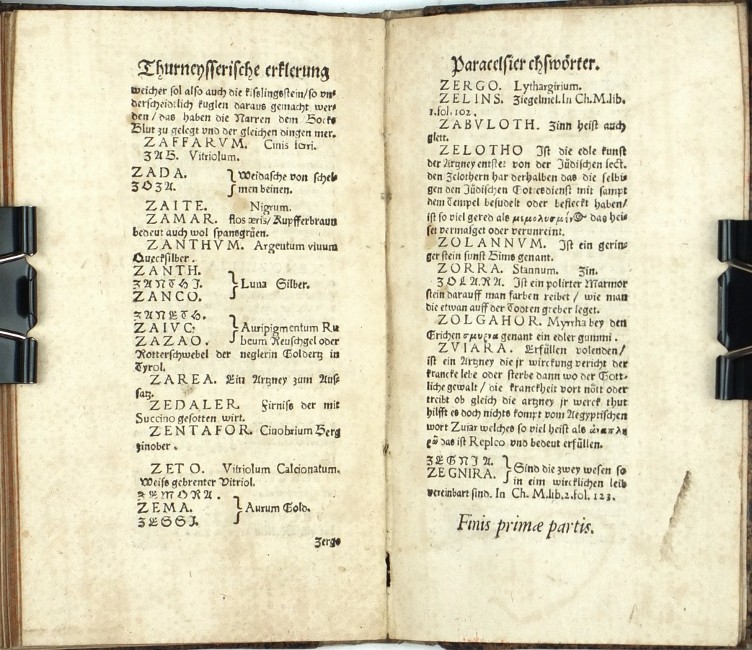 Thurneysserische erklerung
weicher sol also auch die kißlingstein/so vn⸗
derscheidtlich kuglen daraus gemacht wer⸗
den / das haben die Narren dem Bocks
Blut zu gelegt vnd der gleichen dingen mer.
ZAFFARVM. Cinis
ZAB. Vitriolum.
ZADA. } Weidasche von schel⸗
ZOZA. } men beinen.
ZAITE. Nigrum.
ZAMAR. flos æris/ Kupfferbraun
bedeut auch wol spansgrüen.
ZANTHVM. Argentum viuum
Quecksilber.
ZANTH.
ZANTHI. } Luna Silber.
ZANCO.
ZANETH.
ZAIVC. } Auripigmentum Ru
ZAZAO. } beum Reuschgel oder
Rotterschwebel der neglerin Golderz in
Tyrol.
ZAREA. Ein Artzney zum Auß⸗
satz.
ZEDALER. Firniß der mit
Succino gesotten wirt.
ZENTAFOR. Cinobrium Berg
zinober.
ZETO. Vitriolum Calcionatum.
Weiß gebrenter Vitriol.
ZEMORA.
ZEMA. } Aurum Gold.
ZESSI.
Zergo
Paracelsier ehswörter.
ZERGO. Lythargirium.
ZELINS. Ziegelmel. In Ch. M. lib.
1. fol. 102.
ZABVLOTH. Zinn heist auch
glett.
ZELOTHO Ist die edle kunst
der Artzney entstet von der Jüdischen sect.
den Zelothern har derhalben das die selbi⸗
gen den Jüdischen Gottesdienst mit sampt
dem Tempel besudelt oder befleckt haben/
ist so viel gered als das heis
set vermasget oder verunreint.
ZOLANNVM. Ist ein gerin⸗
ger stein sunst Bims genant.
ZORRA. Stannum. Zin.
ZOLARA. Ist ein polirter Marmor
stein darauff man farben reibet / wie man
die etwan auff der Todten greber leget.
ZOLGAHOR. Myrrha bey den
Grichen σμυρνα genant ein edler gummi.
ZVIARA. Erfüllen volenden/
ist ein Artzney die jr wirckung vericht der
krancke lebe oder sterbe dann wo der Gött⸗
liche gewalt / die kranckheit vort nött oder
treibt ob gleich die artzney jr werck thut
hilfft es doch nichts kompt vom Aegyptischen
wort Zuiar welches so viel heist als
das ist Repleo vnd bedeut erfüllen.
ZEGNIA. } Sind die zwey wesen so
ZEGNIRA. } in eim wircklichen leib
vereinbart sind. In Ch. M. lib. 2. fol. 123.
Finis primæ partis.